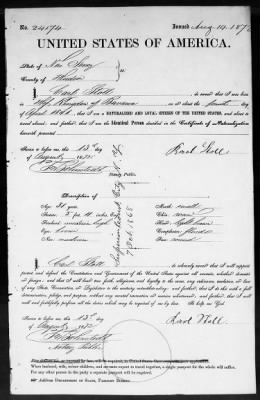 No. 24174 Issued Aug 14 1872
UNITED STATES OF AMERICA.
State of New Jersey
County of Hudson } ss.
I, Carl Stoll, do swear that I was born in
the Kingdom of Bavaria on or about the day of
April that I am a NATURALIZED AND LOYAL CITIZEN OF THE UNITED STATES, and about to
travel abroad; and further, that I am the Identical Person described in the Certificate of Naturalization
herewith presented.
Sworn to before me, this 13th day
of August 1872
Karl Stoll
Notary Public.
Description of
Age: 31 years
Stature: 5 feet 11 inches, Eng.
Forehead: medium high
Eyes: brown
Nose: medium
Mouth: small
Chin: round
Hair: light brown
Complexion: florid
Face: round
I, Carl Stoll, do solemnly swear that I will support,
protect and defend the Constitution and Government of the United States against all enemies, whether domestic
or foreign; and that I will bear true faith, allegiance and loyalty to the same, any ordinance, resolution or law
of any State, Convention or Legislature to the contrary notwithstanding; and further, that I do this with a full
determination, pledge and purpose, without any mental reservation or evasion whatsoever; and further, that I will
well and faithfully perform all the duties which may be required of me by law. So help me God.
Sworn to before me, this 13th
day of August 1872
Karl Stoll
Notary Public
When husband, wife, minor children and servants expect to travel together, a single passport for the whole will suffice.
For any other person in the party a separate passport will be required.
Address Department of State, Passport Bureau.